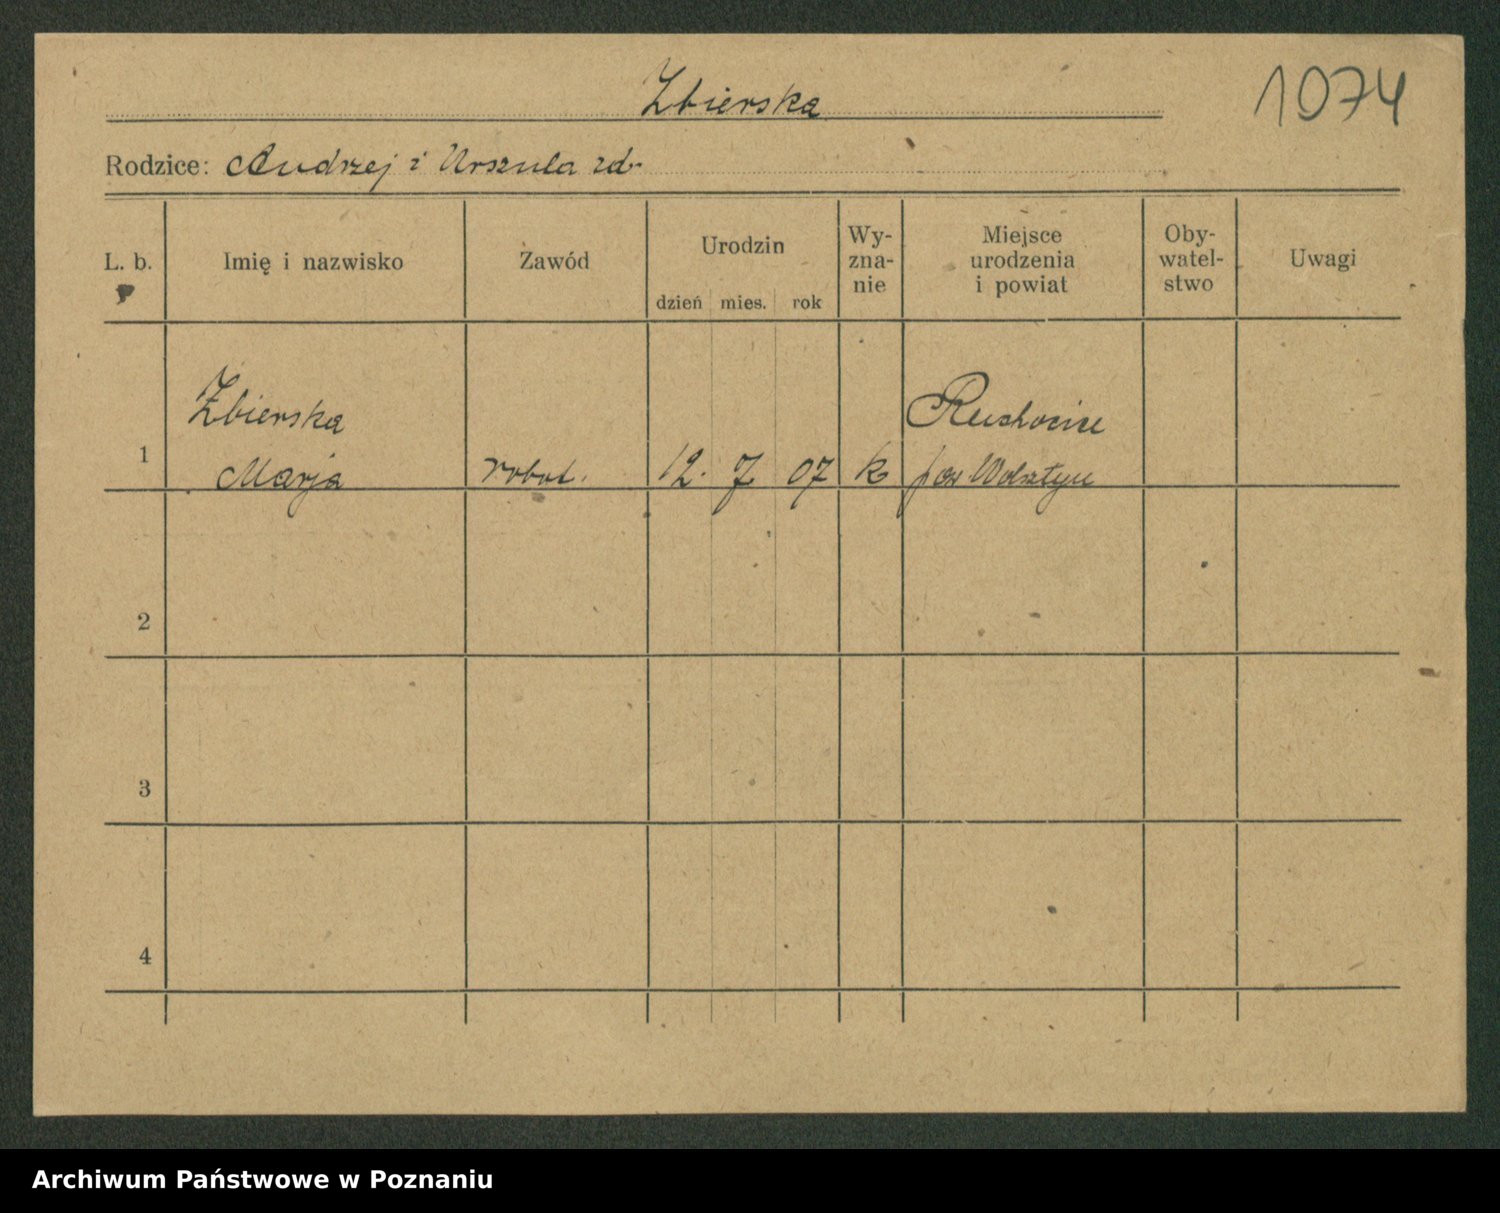 Zbierska
1074
Rodzice: Andrzej i Urszula zd.
L. b.
Imię i nazwisko
Zawód
Urodzin
dzień mies. rok
Wy-
zna-
nie
Miejsce
urodzenia
i powiat
Oby-
watel-
stwo
Uwagi
1
Zbierska
Marja
robot.
12. 7 07
k
Ruchocice
pow Wolsztyn
2
3
4
Archiwum Państwowe w Poznaniu